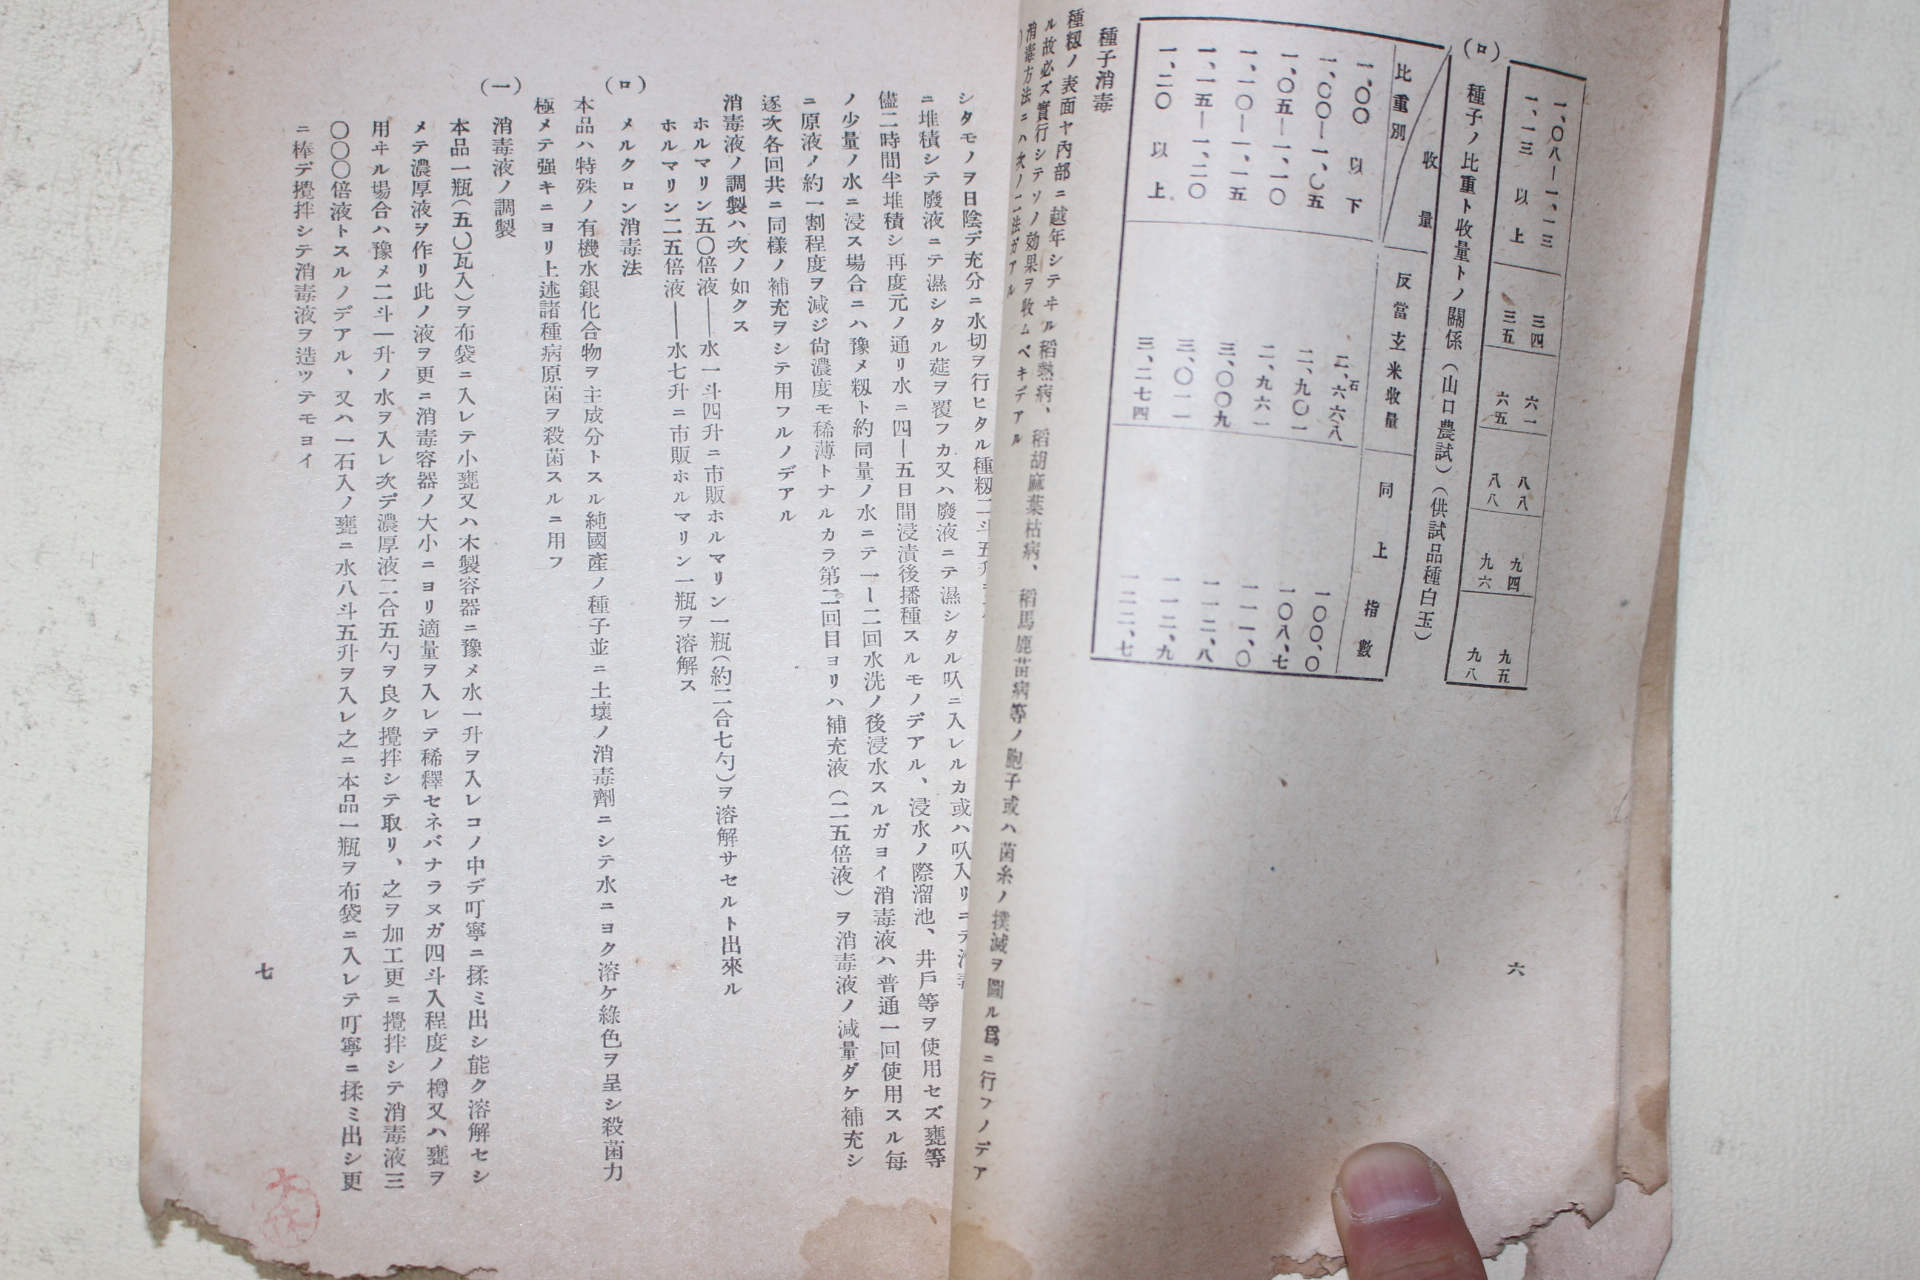 一、〇八―一、一三　三四　六一　八八　九四　九五
一、一三以上　三五　六五　八八　九六　九八
(ロ)　種子ノ比重ト收量トノ關係(山口農試)(供試品種白玉)
比重別　收量　反當玄米收量　同上指數
一、〇〇以下　二、六六八石　一〇〇、〇
一、〇〇―一、〇五　二、九〇一　一〇八、七
一、〇五―一、一〇　二、九六一　一一一、〇
一、一〇―一、一五　三、〇〇九　一一二、八
一、一五―一、二〇　三、〇一一　一一二、九
一、二〇以上　三、二七四　一二二、七
種子消毒
種籾ノ表面ヤ內部ニ越年シテヰル稻熱病、稻胡麻葉枯病、稻馬鹿苗病等ノ胞子或ハ菌糸ノ撲滅ヲ圖ル爲ニ行フノデア
ル故必ズ實行シテソノ効果ヲ收ムベキデアル
消毒方法ニハ次ノ二法ガアル
六
シタモノヲ日陰デ充分ニ水切ヲ行ヒタル種籾二斗五升
ニ堆積シテ廢液ニテ濕シタル莚ヲ覆フカ又ハ廢液ニテ濕シタル叺ニ入レルカ或ハ叺入リニテ
儘二時間半堆積シ再度元ノ通リ水ニ四―五日間浸漬後播種スルモノデアル、浸水ノ際溜池、井戶等ヲ使用セズ甕等
ノ少量ノ水ニ浸ス場合ニハ豫メ籾ト約同量ノ水ニテ一―二回水洗ノ後浸水スルガヨイ消毒液ハ普通一回使用スル每
ニ原液ノ約一割程度ヲ減ジ尙濃度モ稀薄トナルカラ第二回目ヨリハ補充液(二五倍液)ヲ消毒液ノ減量ダケ補充シ
逐次各回共ニ同樣ノ補充ヲシテ用フルノデアル
消毒液ノ調製ハ次ノ如クス
ホルマリン五〇倍液――水一斗四升ニ市販ホルマリン一瓶(約二合七勺)ヲ溶解サセルト出來ル
ホルマリン二五倍液――水七升ニ市販ホルマリン一瓶ヲ溶解ス
(ロ)　メルクロン消毒法
本品ハ特殊ノ有機水銀化合物ヲ主成分トスル純國產ノ種子並ニ土壤ノ消毒劑ニシテ水ニヨク溶ケ綠色ヲ呈シ殺菌力
極メテ强キニヨリ上述諸種病原菌ヲ殺菌スルニ用フ
(一)　消毒液ノ調製
本品一瓶(五〇瓦入)ヲ布袋ニ入レテ小甕又ハ木製容器ニ豫メ水一升ヲ入レコノ中デ叮寧ニ揉ミ出シ能ク溶解セシ
メテ濃厚液ヲ作リ此ノ液ヲ更ニ消毒容器ノ大小ニヨリ適量ヲ入レテ稀釋セネバナラヌガ四斗入程度ノ樽又ハ甕ヲ
用ヰル場合ハ豫メ二斗一升ノ水ヲ入レ次デ濃厚液二合五勺ヲ良ク攪拌シテ取リ、之ヲ加工更ニ攪拌シテ消毒液三
〇〇〇倍液トスルノデアル、又ハ一石入ノ甕ニ水八斗五升ヲ入レ之ニ本品一瓶ヲ布袋ニ入レテ叮寧ニ揉ミ出シ更
ニ棒デ攪拌シテ消毒液ヲ造ツテモヨイ
七